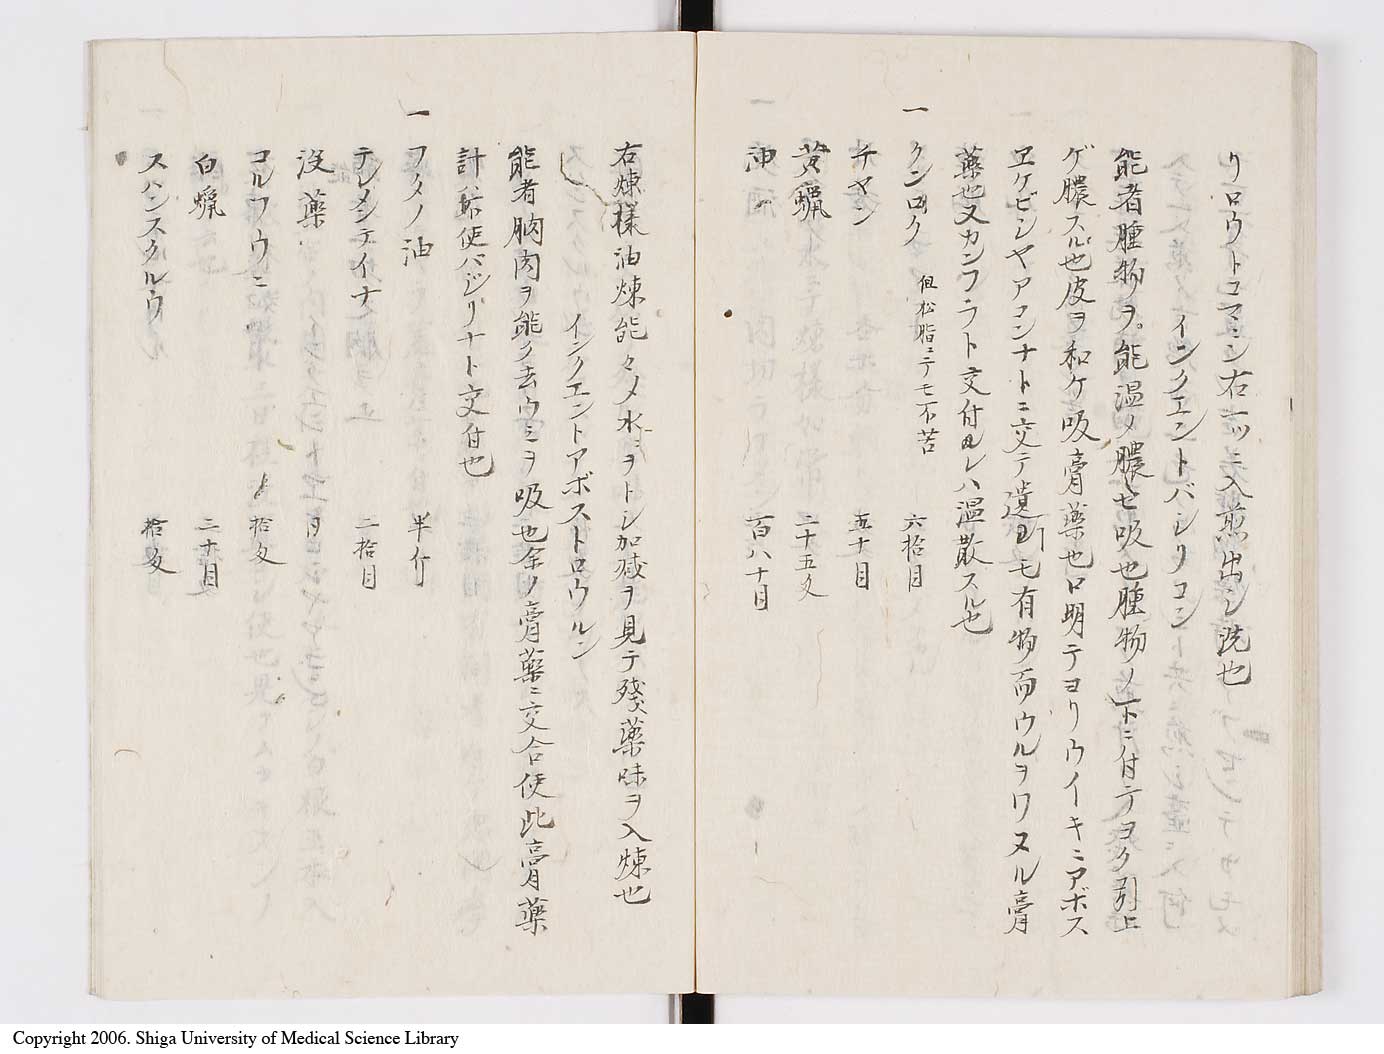 リロウトコマンシ右一ツニ入煎出シ洗也
インクエントバシリコン
能者腫物ヲ能温メ膿ヲモ吸也腫物ノ下ニ付テヨク引上
ゲ膿スル也皮ヲ和ケ吸膏薬也口明テヨリウイーキニアボス
ヱケビシヤアコンナトニ交テ遣
モ有物而ウルヲワヌル膏
薬也又カンフラト交付
レハ温散スル也
一 クンロク 但松脂ニテモ不苦 六拾目
チヤン 五十目
黄蝋 二十五匁
油 百八十目
右煉様油煉能々〆水ヲヲトシ加減ヲ見テ残薬味ヲ入煉也
インクエントアボストロウルン
能者䐃肉ヲ能ク去ウミヲ吸也余ノ膏薬ニ交合使此膏薬
計
使バジリナト交付也
一 フタノ油 半斤
テレメンテイナ 二拾目
没薬
コルフウニ 拾匁
白蝋 二十目
スハンスクルウ 拾匁
Copyright 2006. Shiga University of Medical Science Library